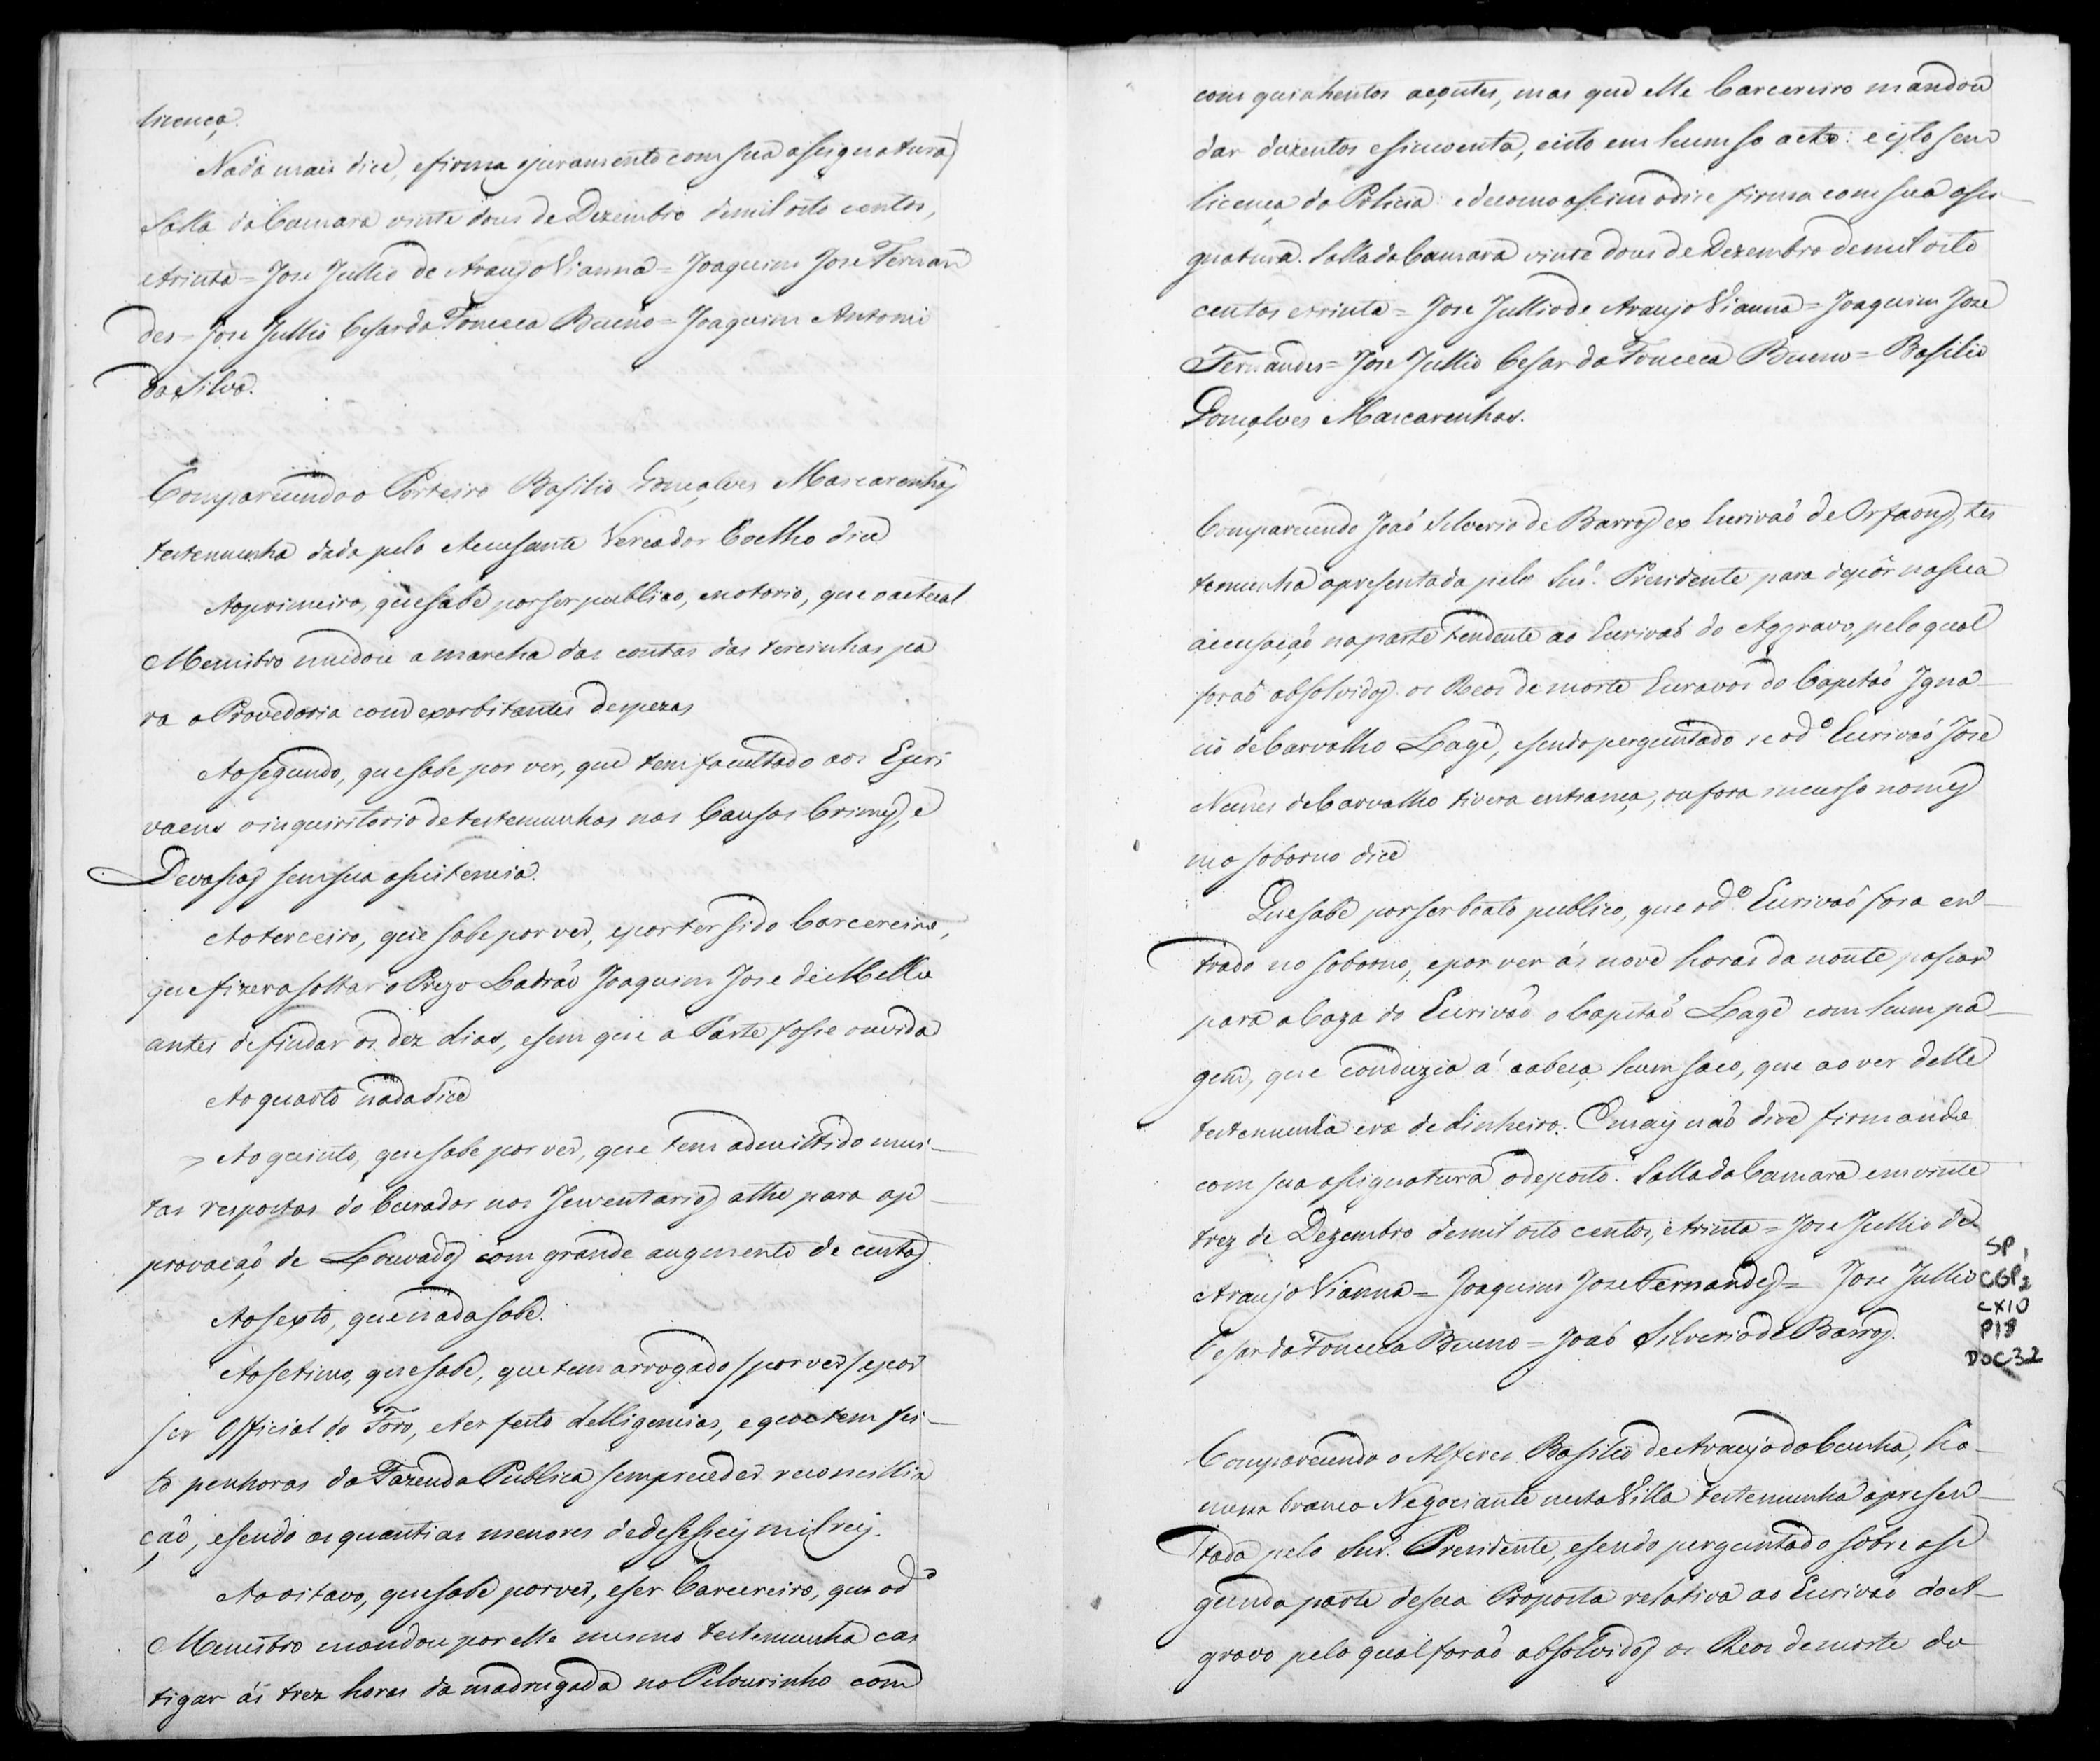 licença.
Nada mais dice, e firma o juramento com sua assignatura
Salla da Camara vinte dous de Dezembro de mil oito centos,
e trinta = Jose Jullio de Araujo Vianna = Joaquim Jose Fernan
des = Jose Jullio Cesar da Fonceca Bueno = Joaquim Antonio
da Silva.
Comparecendo o Porteiro Basilio Gonçalves Mascarenhas
testemunha dada pelo Acusante Vereador Coelho dice
Ao primeiro, que sabe por ser publico, e notorio, que o actual
Menistro mudou a marcha das contas das tercinhas pa
ra a Provedoria com exorbitantes despezas
Ao segundo, que sabe por ver, que tem facultado aos Escri
vaens o inquiritorio de testemunhas nas Causas Crimes, e
Devassas sem sua assistencia.
Ao terceiro, que sabe por ver, e por ter sido Carcereiro,
que fizera soltar o Prezo Ladrão Joaquim Jose de Mello
antes de findar os dez dias, e sem que a Parte fosse ouvida
Ao quarto nada dice
Ao quinto, que sabe por ver, que tem admittido mui-
tas respostas do Curador nos Inventarios athe para ap-
provação de Louvados com grande augmento de custas.
Ao sexto, que nada sabe.
Ao setimo, que sabe, que tem arrogado /por ver/ e por
ser Official do Foro, e ter feito delligencias, e que tem fei-
to penhoras da Fazenda Publica sem preceder reconcillia
ção, e sendo as quantias menores de desesseis mil reis.
Ao oitavo, que sabe por ver, e ser Carcereiro, que o dº
Menistro mandou por elle mesmo testemunha cas
tigar ás trez horas da madrugada no Pelourinho com
com quinhentos açoutes, mas que elle Carcereiro mandou
dar duzentos e sincoenta, e isto em hum so acto: e isto sem
licença da Policia: e de como assim o dice firma com sua assi-
gnatura. Salla da Camara vinte dous de Dezembro de mil oito
centos e trinta = Jose Jullio de Araujo Vianna = Joaquim Joze
Fernandes = Jose Jullio Cesar da Fonceca Bueno = Basilio
Gonçalves Mascarenhas.
Comparecendo João Silverio de Barros ex Escrivão de Orfaons, tes
temunha apresentada pelo Snr. Presidente para depôr na sua
accusação na parte tendente ao Escrivão do Aggravo, pelo qual
forão absolvidos os Reos de morte Escravos do Capitão Igna-
cio de Carvalho Lage, e sendo perguntado se o dº Escrivão Jose
Nunes de Carvalho tivera entrança, ou fora incurso no mes
mo soborno dice
Que sabe por ser boato publico, que o dº Escrivão fora en-
trado no soborno, e por ver ás nove horas da noute passar
para a Caza do Escrivão o Capitão Lage com hum pa-
gem, que conduzia á cabeça hum saco, que ao ver delle
testemunha era de dinheiro. E mais não dice firmando
com sua assignatura o deposto. Salla da Camara em vinte
trez de Dezembro de mil oito centos, e trinta = Jose Jullio de
Araujo Vianna = Joaquim Joze Fernandes = Jose Jullio
Cesar da Fonceca Bueno = João Silverio de Barros.
SP1
CGP2
CX10
P18
DOC32
Comparecendo o Alferes Basilio de Araujo da Cunha, ho-
mem branco Negociante nesta Villa testemunha apresen-
tada pelo Snr. Presidente, e sendo perguntado sobre a se
gunda parte de sua Proposta relativa ao Escrivão do A-
gravo pelo qual forão absolvidos os Reos de morte do